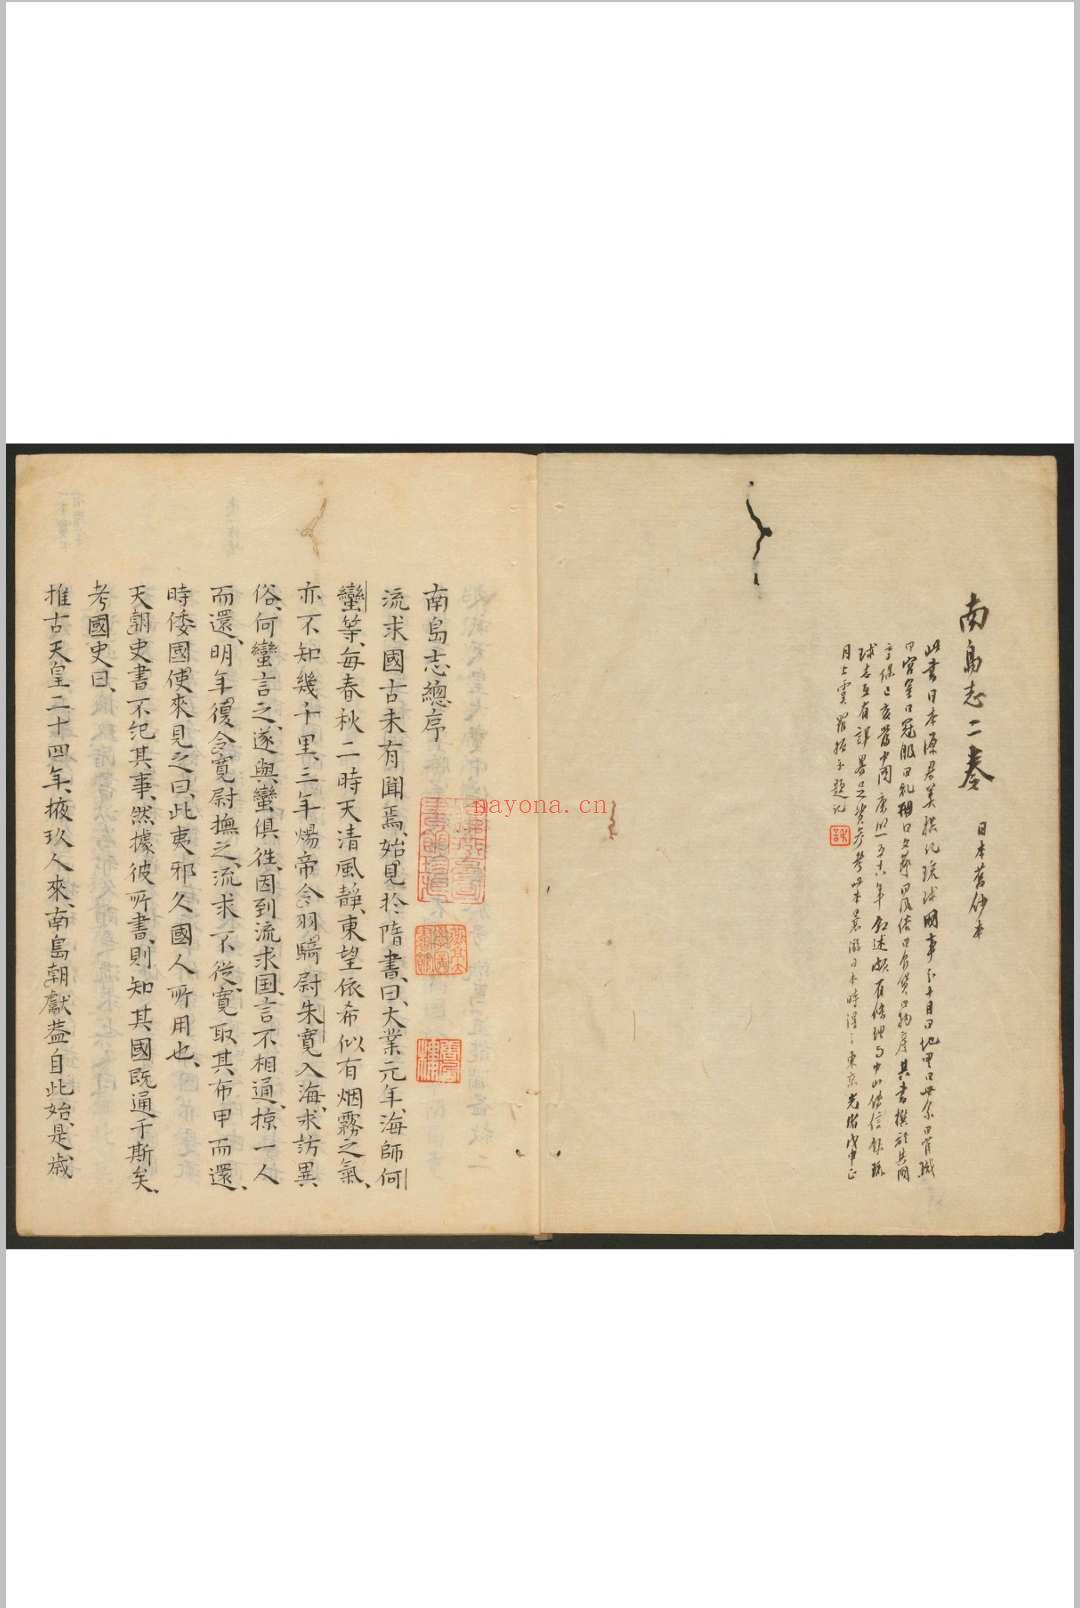 南島志二卷
日本舊鈔本
此書日本源君美撰紀琉球國事分十目曰地理曰世系曰官職
曰宮室曰冠服曰禮曰文藝曰風俗曰食貨曰物產其書撰於其國
享保己亥當中國康熙五十八年敘述頗有條理與中山傳信錄琉
球志互有詳畧足資參考此本曩游日本時得之東京光緒戊申正
月上虞羅振玉題記
南島志總序
流求國古未有聞焉、始見於隋書、曰、大業元年、海師何
蠻等、每春秋二時、天清風靜、東望依希、似有烟霧之氣、
亦不知幾千里、三年煬帝令羽騎尉朱寬入海、求訪異
俗、何蠻言之、遂與蠻俱往、因到流求国、言不相通、掠一人
而還、明年復令寬尉撫之、流求不從、寬取其布甲而還、
時倭國使來見之曰、此夷邪久國人所用也、
天朝史書不紀其事、然據彼所書、則知其國既通于斯矣、
考國史曰、
推古天皇二十四年、掖玖人來、南島朝獻葢自此始、是歲
nayona.cn